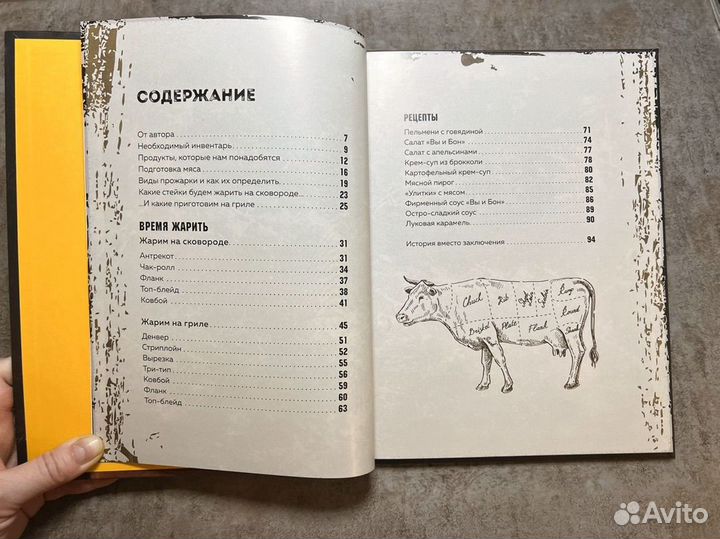 СОДЕРЖАНИЕ
От автора 7
Необходимый инвентарь 9
Продукты, которые нам понадобятся 12
Подготовка мяса 16
Виды прожарки и как их определить 19
Какие стейки будем жарить на сковороде... 23
...И какие приготовим на гриле 25
ВРЕМЯ ЖАРИТЬ
Жарим на сковороде 31
Антрекот 31
Чак-ролл 34
Фланк 37
Топ-блейд 38
Ковбой 41
Жарим на гриле 45
Денвер 51
Стриплойн 52
Вырезка 55
Три-тип 56
Ковбой 59
Фланк 60
Топ-блейд 63
РЕЦЕПТЫ
Пельмени с говядиной 71
Салат «Вы и Бон» 74
Салат с апельсинами 77
Крем-суп из брокколи 78
Картофельный крем-суп 80
Мясной пирог 82
«Улитки» с мясом 85
Фирменный соус «Вы и Бон» 86
Остро-сладкий соус 89
Луковая карамель 90
История вместо заключения 94
Chuck Rib Rump
Round
Brisket Plate Flank Shank
Avito